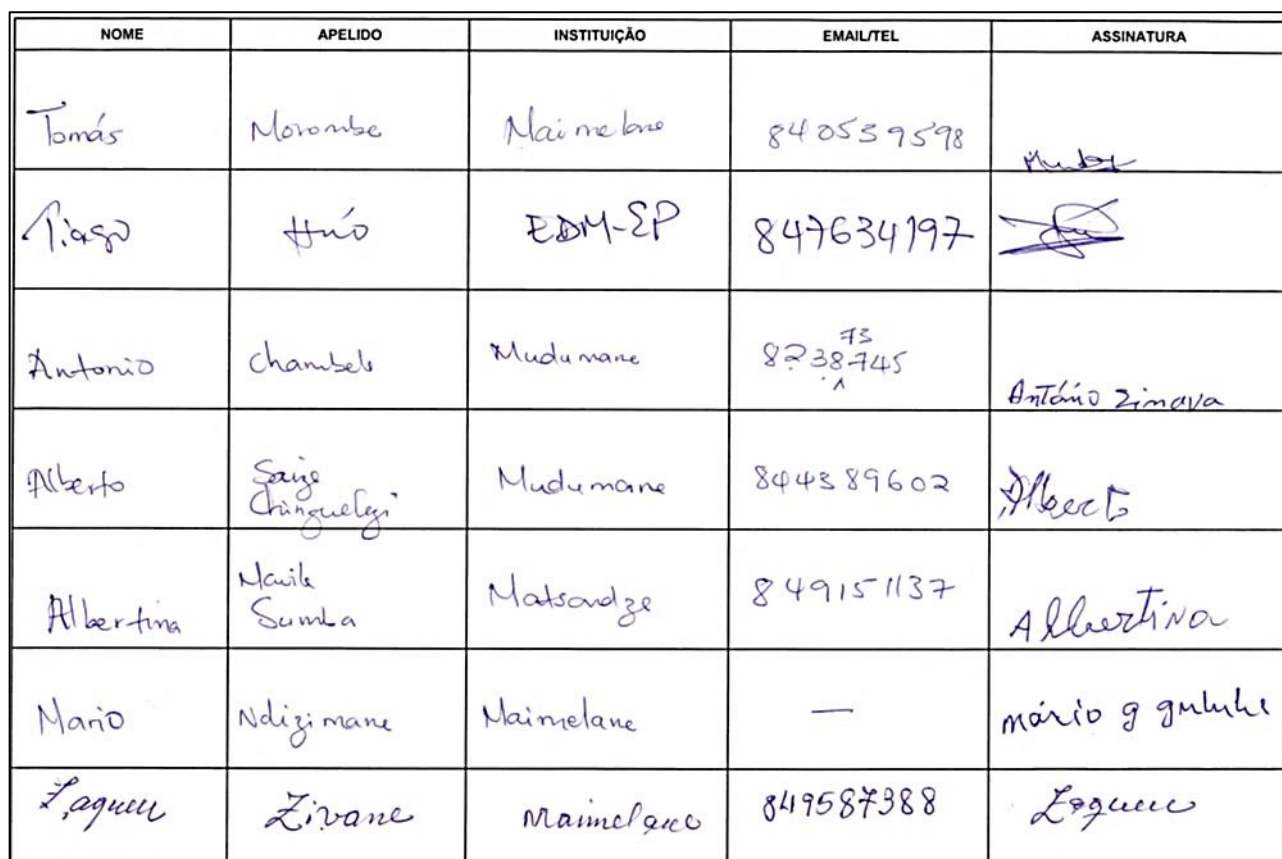 NOME APELIDO INSTITUIÇÃO EMAIL/TEL ASSINATURA
Tomás Morombe Maimelane 840539598
Tiago EDM-EP 847634197
73
Antonio Chambele Mudumane 8238745
António Zimava
Alberto Mudumane 844389602 Alberto
Mavile
Albertina Sumba Matsandze 849151137 Albertina
Mario Ndizimane Maimelane — mário g
Zaqueu Zivane Maimelane 849587388 Zaqueu